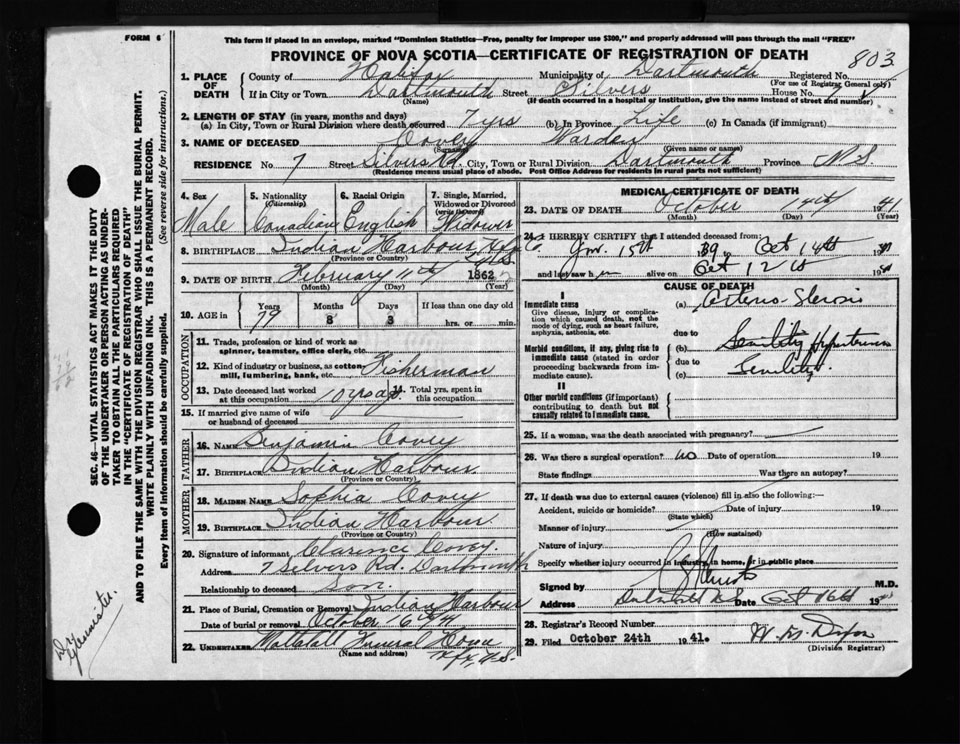 FORM 6
This form if placed in an envelope, marked "Dominion Statistics—Free, penalty for improper use $300," and properly addressed will pass through the mail "FREE"
PROVINCE OF NOVA SCOTIA—CERTIFICATE OF REGISTRATION OF DEATH
803
1. PLACE OF DEATH
County of Halifax Municipality of Dartmouth Registered No.
(For use of Registrar General only)
If in City or Town Dartmouth Street Silvers House No. 7
(Name) (If death occurred in a hospital or institution, give the name instead of street and number)
2. LENGTH OF STAY (in years, months and days)
(a) In City, Town or Rural Division where death occurred 7 yrs (b) In Province Life (c) In Canada (if immigrant)
3. NAME OF DECEASED Covey Warden
(Surname) (Given name or names)
RESIDENCE No. 7 Street Silvers Rd. City, Town or Rural Division Dartmouth Province N.S.
(Residence means usual place of abode. Post Office Address for residents in rural parts not sufficient)
4. Sex Male
5. Nationality (Citizenship) Canadian
6. Racial Origin English
7. Single, Married, Widowed or Divorced (write the word) Widower
8. BIRTHPLACE Indian Harbour Hfx Co. N.S.
(Province or Country)
9. DATE OF BIRTH February 11th 1862
(Month) (Day) (Year)
10. AGE in Years 79 Months 8 Days 3 If less than one day old hrs. or min.
OCCUPATION
11. Trade, profession or kind of work as spinner, teamster, office clerk, etc.
12. Kind of industry or business, as cotton mill, lumbering, bank, etc. Fisherman
13. Date deceased last worked at this occupation 10 yrs ago 14. Total yrs. spent in this occupation
15. If married give name of wife or husband of deceased
FATHER
16. NAME Benjamin Covey
17. BIRTHPLACE Indian Harbour
(Province or Country)
MOTHER
18. MAIDEN NAME Sophia Covey
19. BIRTHPLACE Indian Harbour
(Province or Country)
20. Signature of informant Clarence Covey
Address 7 Silvers Rd. Dartmouth
Relationship to deceased son.
21. Place of Burial, Cremation or Removal Indian Harbour
Date of burial or removal October 16
22. UNDERTAKER Funeral Home
(Name and address) Hfx, N.S.
MEDICAL CERTIFICATE OF DEATH
23. DATE OF DEATH October 14th 1941
(Month) (Day) (Year)
24. I HEREBY CERTIFY that I attended deceased from:
15th 39 Oct 14th
and last saw him alive on Oct 12
CAUSE OF DEATH
I
Immediate cause
Give disease, injury or complication which caused death, not the mode of dying, such as heart failure, asphyxia, asthenia, etc.
(a)
due to
Morbid conditions, if any, giving rise to immediate cause (stated in order proceeding backwards from immediate cause).
(b)
due to
(c) Senility
II
Other morbid conditions (if important) contributing to death but not causally related to immediate cause.
25. If a woman, was the death associated with pregnancy?
26. Was there a surgical operation? no Date of operation 19
State findings Was there an autopsy?
27. If death was due to external causes (violence) fill in also the following:—
Accident, suicide or homicide? Date of injury 19
(State which)
Manner of injury
(How sustained)
Nature of injury
Specify whether injury occurred in industry, in home, or in public place
Signed by M.D.
Address Date Oct 19
28. Registrar's Record Number
29. Filed October 24th 1941. Dixon
(Division Registrar)
SEC. 46—VITAL STATISTICS ACT MAKES IT THE DUTY
OF THE UNDERTAKER OR PERSON ACTING AS UNDERTAKER TO OBTAIN ALL THE PARTICULARS REQUIRED
IN THE "CERTIFICATE OF REGISTRATION OF DEATH"
AND TO FILE THE SAME WITH THE DIVISION REGISTRAR WHO SHALL ISSUE THE BURIAL PERMIT.
WRITE PLAINLY WITH UNFADING INK. THIS IS A PERMANENT RECORD.
Every item of information should be carefully supplied. (See reverse side for instructions.)